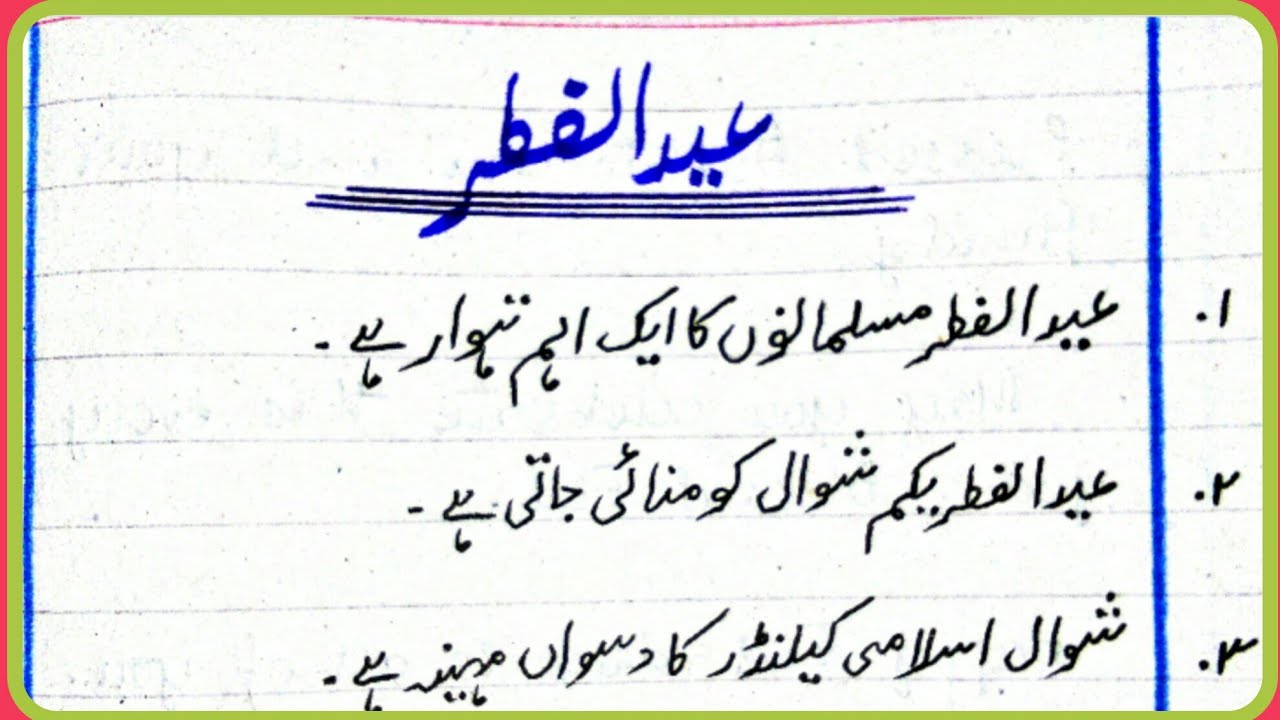 عید الفطر
۱. عید الفطر مسلمانوں کا ایک اہم تہوار ہے۔
۲. عید الفطر یکم شوال کو منائی جاتی ہے۔
۳. شوال اسلامی کیلنڈر کا دسواں مہینہ ہے۔